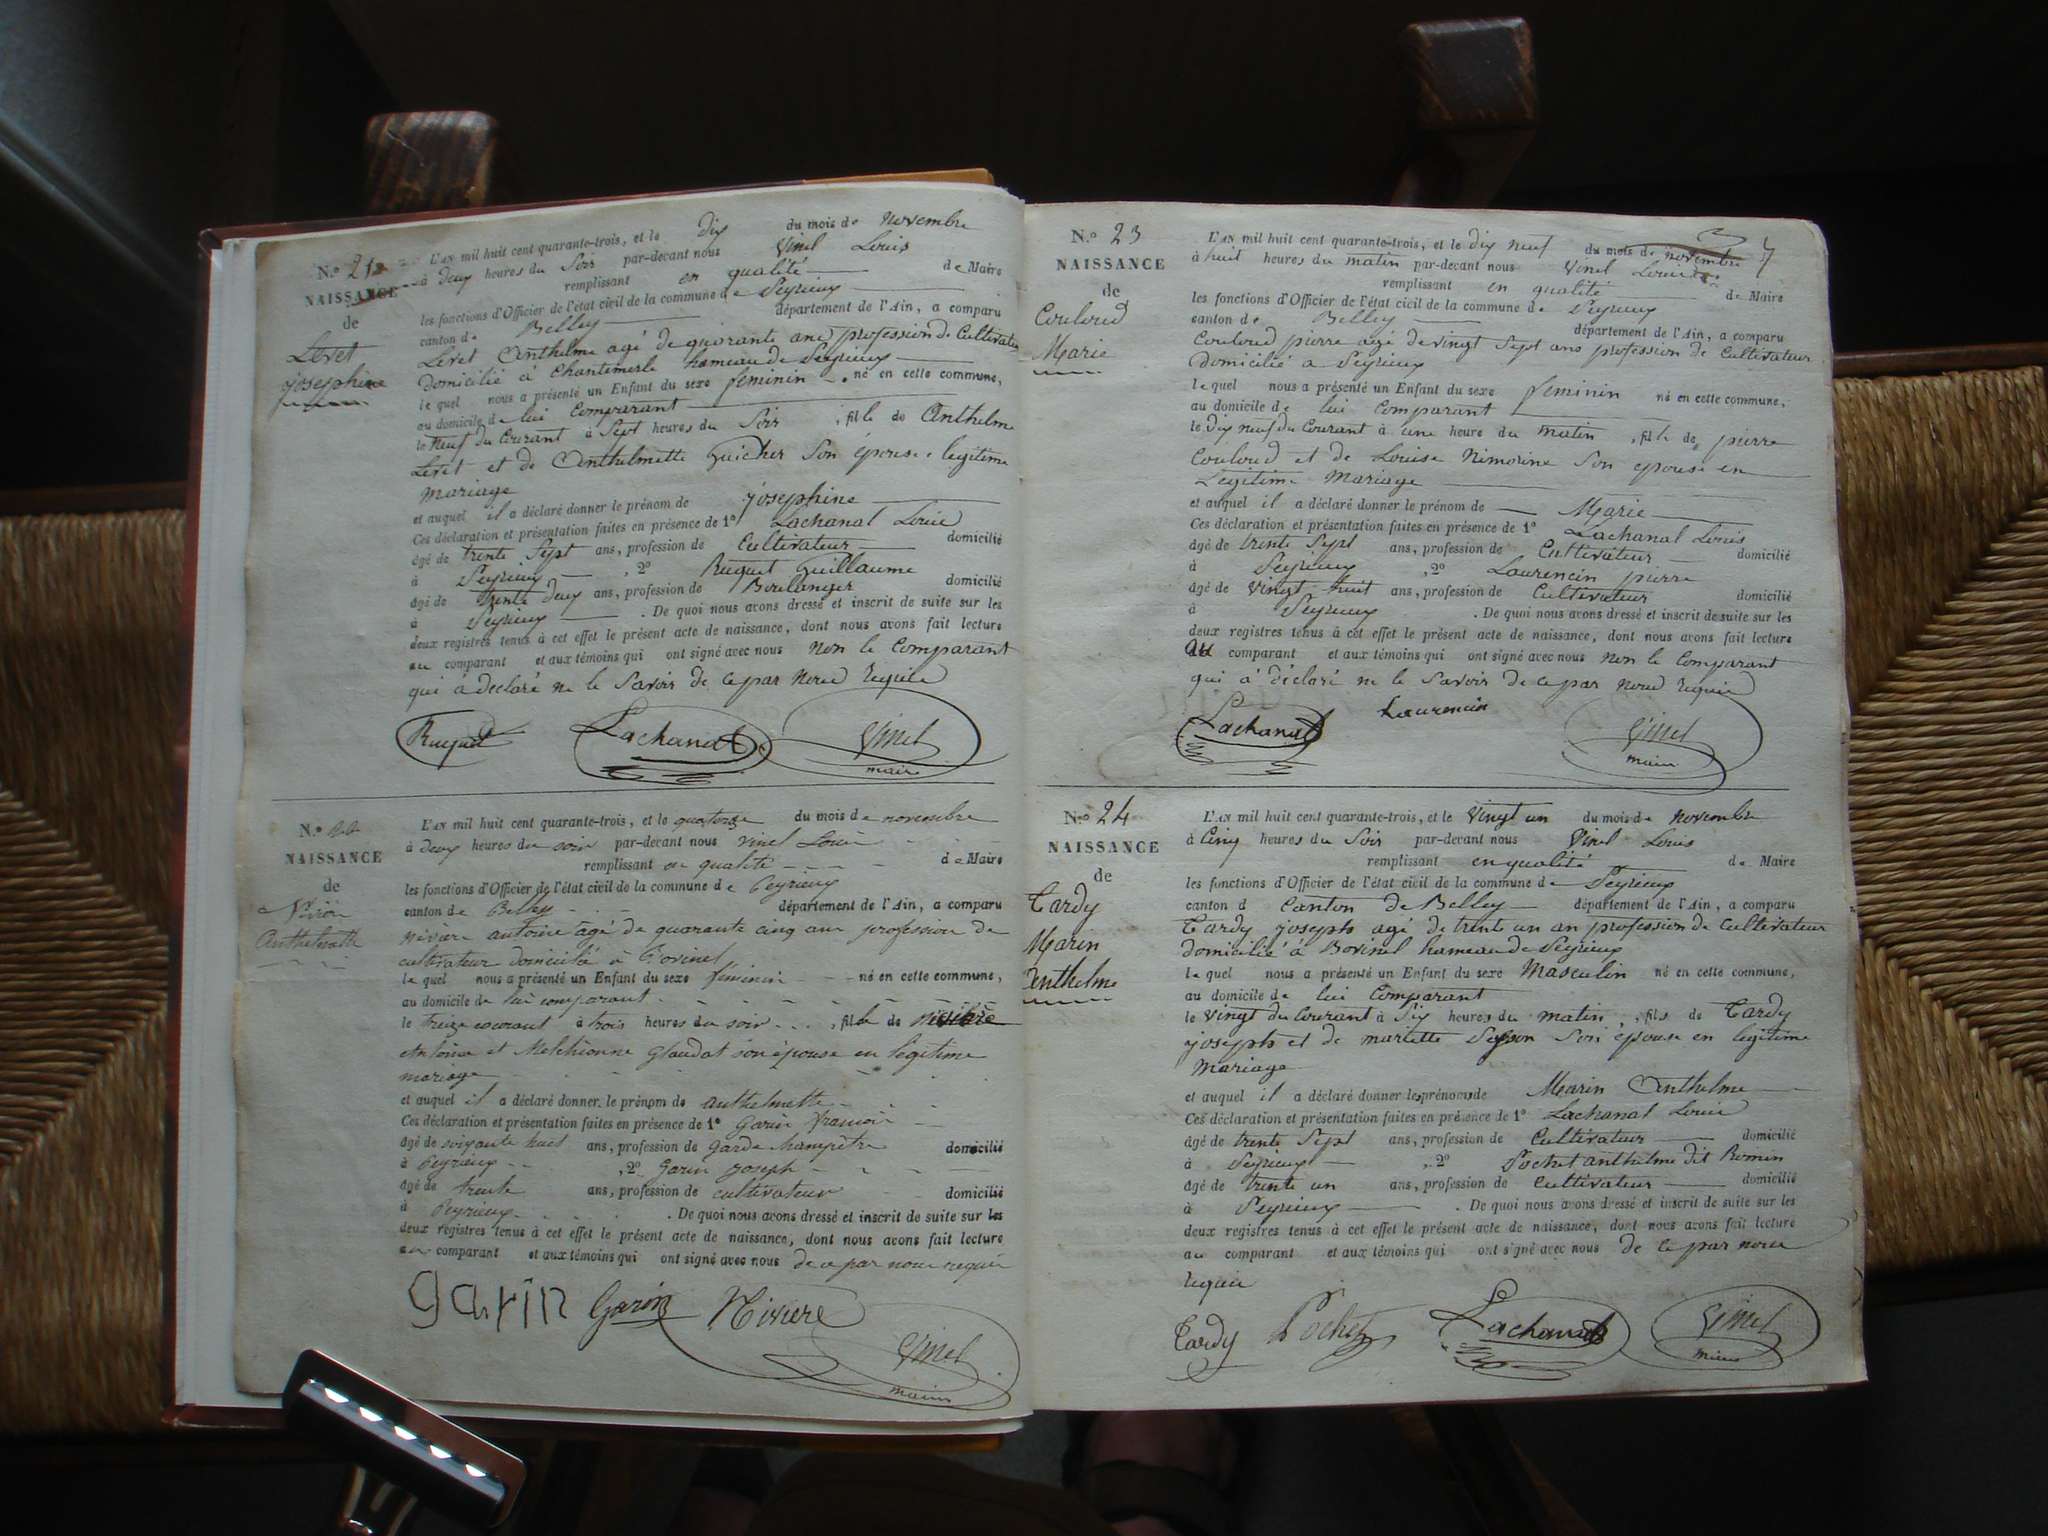 N.º 21
NAISSANCE
de
Levet
josephine
L'AN mil huit cent quarante-trois, et le dix du mois de novembre
à deux heures du Soir par-devant nous Vinel Louis
remplissant en qualité de Maire
les fonctions d'Officier de l'état civil de la commune de Peyrieux
canton de Belley département de l'Ain, a comparu
Levet Anthelme agé de quarante ans profession de Cultivateur
domicilié à Chantemerle hameau de Peyrieux
lequel nous a présenté un Enfant du sexe feminin né en cette commune,
au domicile de lui Comparant
le Neuf du Courant à Sept heures du Soir , fille de Anthelme
Levet et de Anthelmette Guicher Son épouse legitime
mariage
et auquel il a déclaré donner le prénom de josephine
Ces déclaration et présentation faites en présence de 1º Lachanal Louis
âgé de trente Sept ans, profession de Cultivateur domicilié
à Peyrieux , 2º Ruquet Guillaume
âgé de trente deux ans, profession de Boulanger domicilié
à Peyrieux . De quoi nous avons dressé et inscrit de suite sur les
deux registres tenus à cet effet le présent acte de naissance, dont nous avons fait lecture
au comparant et aux témoins qui ont signé avec nous non le Comparant
qui à déclaré ne le Savoir de ce par nous requis
Ruquet Lachanal Vinel
maire
N.º 22
NAISSANCE
de
Anthelmette
L'AN mil huit cent quarante-trois, et le quatorze du mois de novembre
à deux heures du soir par-devant nous vinel Louis
remplissant en qualité de Maire
les fonctions d'Officier de l'état civil de la commune de Peyrieux
canton de Belley département de l'Ain, a comparu
Rivière antoine âgé de quarante cinq ans profession de
cultivateur domicilié à Bovinel
lequel nous a présenté un Enfant du sexe féminin né en cette commune,
au domicile de lui comparant
le treize courant à trois heures du soir , fille de rivière
Antoine et Melchionne Glaudat son épouse en légitime
mariage
et auquel il a déclaré donner le prénom de anthelmette
Ces déclaration et présentation faites en présence de 1º Garin francois
âgé de soixante huit ans, profession de garde champêtre domicilié
à Peyrieux , 2º Garin joseph
âgé de trente ans, profession de cultivateur domicilié
à Peyrieux . De quoi nous avons dressé et inscrit de suite sur les
deux registres tenus à cet effet le présent acte de naissance, dont nous avons fait lecture
au comparant et aux témoins qui ont signé avec nous de ce par nous requis
garin Garin Riviere Vinel
maire
N.º 23
NAISSANCE
de
Couloud
Marie
L'AN mil huit cent quarante-trois, et le dix neuf du mois de novembre
à huit heures du matin par-devant nous Vinel Louis
remplissant en qualité de Maire
les fonctions d'Officier de l'état civil de la commune de Peyrieux
canton de Belley département de l'Ain, a comparu
Couloud pierre agé de vingt Sept ans profession de Cultivateur
domicilié a Peyrieux
lequel nous a présenté un Enfant du sexe feminin né en cette commune,
au domicile de lui Comparant
le dix neuf du Courant à une heure du matin , fille de pierre
Couloud et de Louise Nimorine Son épouse en
Legitime Mariage
et auquel il a déclaré donner le prénom de Marie
Ces déclaration et présentation faites en présence de 1º Lachanal Louis
âgé de trente Sept ans, profession de Cultivateur domicilié
à Peyrieux , 2º Laurencin pierre
âgé de vingt huit ans, profession de Cultivateur domicilié
à Peyrieux . De quoi nous avons dressé et inscrit de suite sur les
deux registres tenus à cet effet le présent acte de naissance, dont nous avons fait lecture
au comparant et aux témoins qui ont signé avec nous non le Comparant
qui à déclaré ne le Savoir de ce par nous requis
Lachanal Laurencin Vinel
maire
N.º 24
NAISSANCE
de
Tardy
Marin
Anthelme
L'AN mil huit cent quarante-trois, et le vingt un du mois de novembre
à Cinq heures du Soir par-devant nous Vinel Louis
remplissant en qualité de Maire
les fonctions d'Officier de l'état civil de la commune de Peyrieux
canton d Canton de Belley département de l'Ain, a comparu
Tardy joseph agé de trente un an profession de Cultivateur
domicilié à Bovinel hameau de Peyrieux
lequel nous a présenté un Enfant du sexe Masculin né en cette commune,
au domicile de lui Comparant
le vingt du Courant à Six heures du matin , fils de Tardy
joseph et de mariette Son épouse en legitime
Mariage
et auquel il a déclaré donner les prénoms de Marin Anthelme
Ces déclaration et présentation faites en présence de 1º Lachanal Louis
âgé de trente Sept ans, profession de Cultivateur domicilié
à Peyrieux , 2º Pochet anthelme dit Romin
âgé de trente un ans, profession de Cultivateur domicilié
à Peyrieux . De quoi nous avons dressé et inscrit de suite sur les
deux registres tenus à cet effet le présent acte de naissance, dont nous avons fait lecture
au comparant et aux témoins qui ont signé avec nous de ce par nous
requis
Tardy Pochet Lachanal Vinel
maire